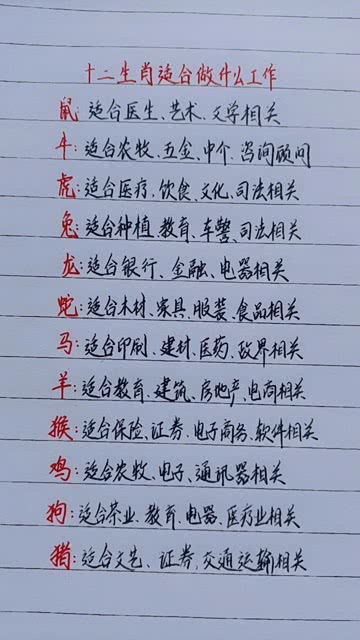 十二生肖适合做什么工作
鼠:适合医生、艺术、文学相关
牛:适合农牧、五金、中介、咨询顾问
虎:适合医疗、饮食、文化、司法相关
兔:适合种植、教育、车警、司法相关
龙:适合银行、金融、电器相关
蛇:适合木材、家具、服装、食品相关
马:适合印刷、建材、医药、政界相关
羊:适合教育、建筑、房地产、电商相关
猴:适合保险、证券、电子商务、软件相关
鸡:适合农牧、电子、通讯器相关
狗:适合茶业、教育、电器、医疗业相关
猪:适合文艺、证券、交通运输相关